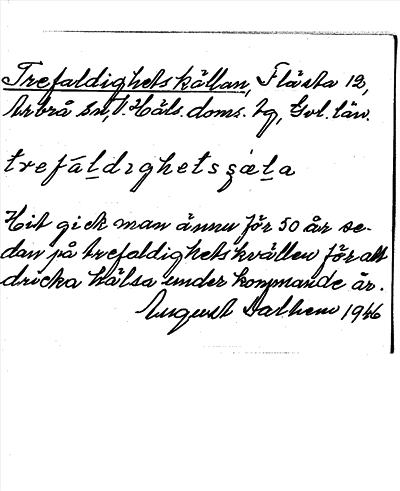 Trefaldighetskällan, Flästa 12,
Arbrå sn, v. Häls. doms. tg, Gvl. län.
trefáldıghetsʂæ̀ḷa
Hit gick man ännu för 50 år se-
dan på trefaldighetskvällen för att
dricka hälsa under kommande år.
August Dalhem 1946